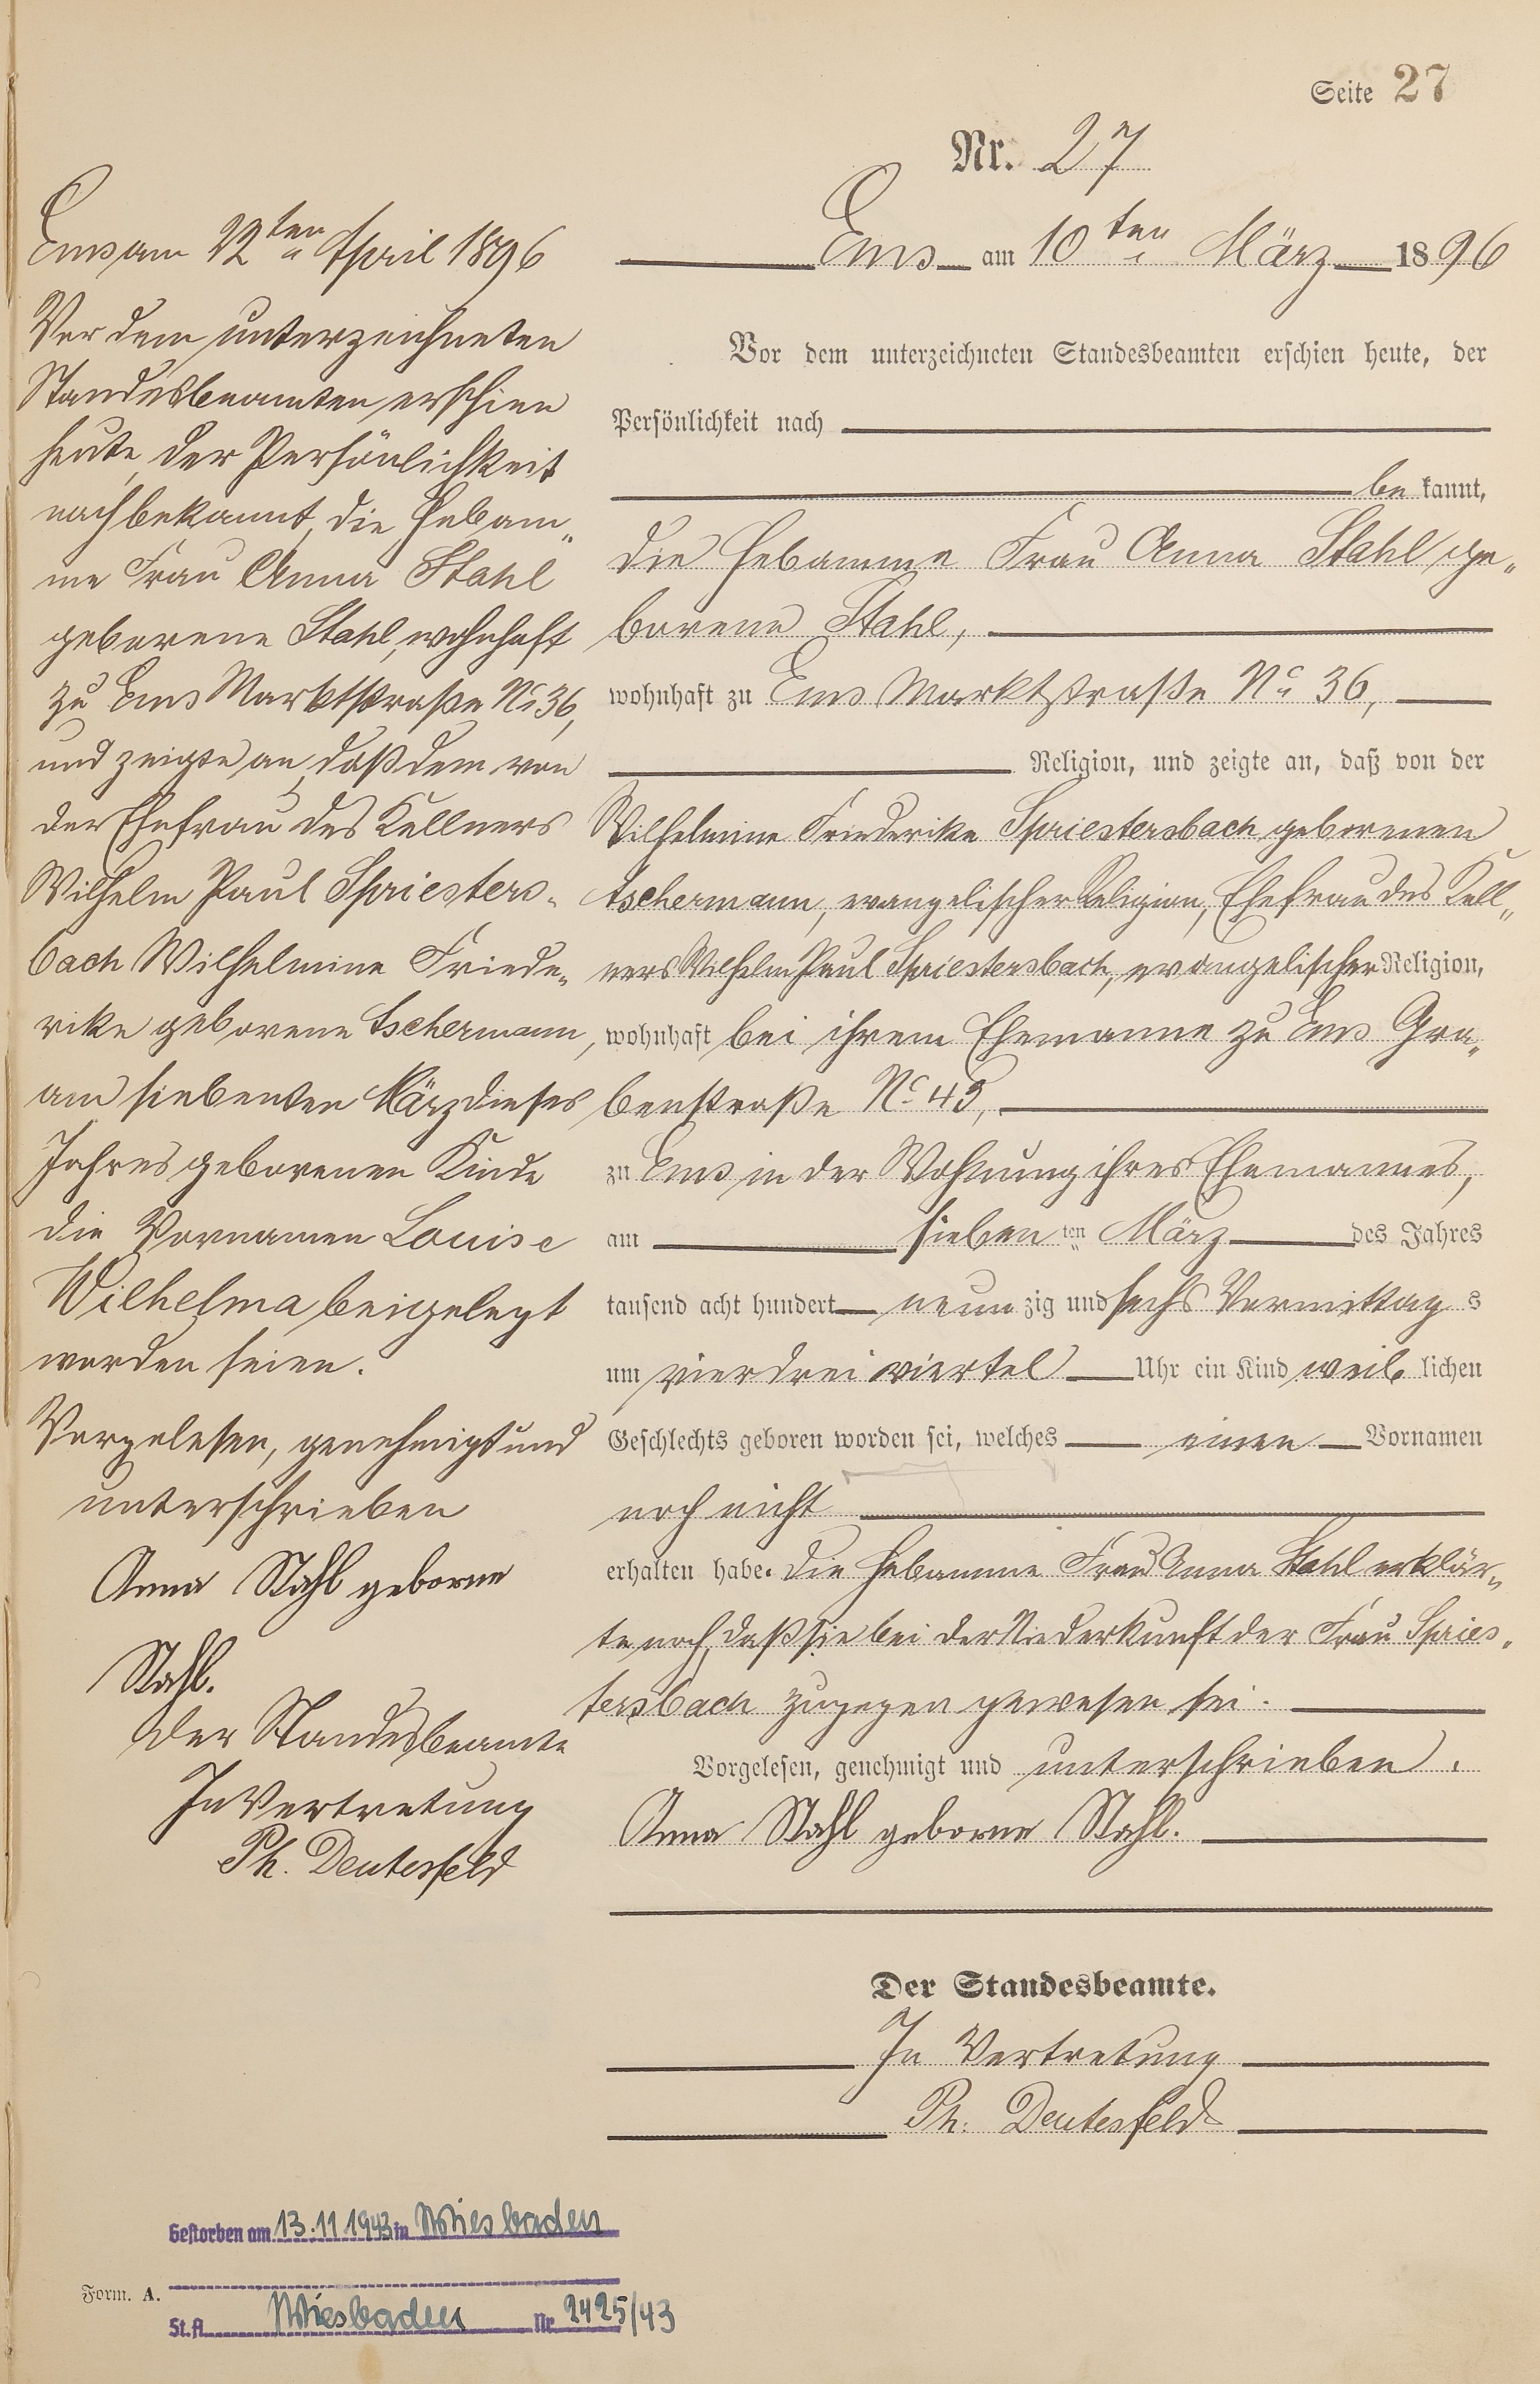 Seite 27
Nr. 27
Ems am 10ten März 1896
Vor dem unterzeichneten Standesbeamten erschien heute, der
Persönlichkeit nach
bekannt,
die Hebamme Frau Anna Stahl ge„
borene Stahl,
wohnhaft zu Ems Marktstraße No 36,
Religion, und zeigte an, daß von der
Wilhelmine Friederike Spriestersbach geborenen
Aschermann, evangelischer Religion, Ehefrau des Kell„
ners Wilhelm Paul Spriestersbach, evangelischer Religion,
wohnhaft bei ihrem Ehemanne zu Ems Gra„
benstraße No 43,
zu Ems in der Wohnung ihres Ehemannes,
am siebenten März des Jahres
tausend acht hundert neunzig und sechs Vormittags
um vier drei viertel Uhr ein Kind weiblichen
Geschlechts geboren worden sei, welches einen Vornamen
noch nicht
erhalten habe. Die Hebamme Frau Anna Stahl erklär„
te noch, daß sie bei der Niederkunft der Frau Spries„
tersbach zugegen gewesen sei.
Vorgelesen, genehmigt und unterschrieben.
Anna Stahl geborne Stahl.
Der Standesbeamte.
In Vertretung
Ph. Deutesfeld
Ems am 22ten April 1896
Vor dem unterzeichneten
Standesbeamten erschien
heute, der Persönlichkeit
nach bekannt, die Hebam„
me Frau Anna Stahl
geborene Stahl, wohnhaft
zu Ems Marktstraße No 36,
und zeigte an, daß dem von
der Ehefrau des Kellners
Wilhelm Paul Spriesters„
bach Wilhelmine Friede„
rike geborene Aschermann,
am siebenten März dieses
Jahres geborenen Kinde
die Vornamen Louise
Wilhelma beigelegt
worden seien.
Vorgelesen, genehmigt und
unterschrieben
Anna Stahl geborne
Stahl.
Der Standesbeamte
In Vertretung
Ph. Deutesfeld
Gestorben am 13.11.1943 in Wiesbaden
Form. A.
St.A. Wiesbaden Nr. 2425/43